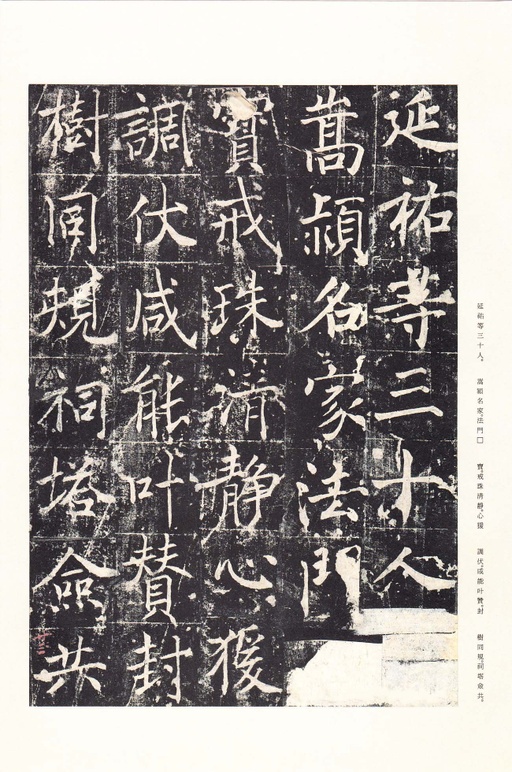 延祐等三十人。　嵩潁名家、法門□　寶、戒珠清靜、心猨　調伏、咸能叶贊、封　樹同規、祠塔僉共。
延祐等三十人
嵩潁名家法門
寶戒珠清靜心猨
調伏咸能叶贊封
樹同規祠塔僉共